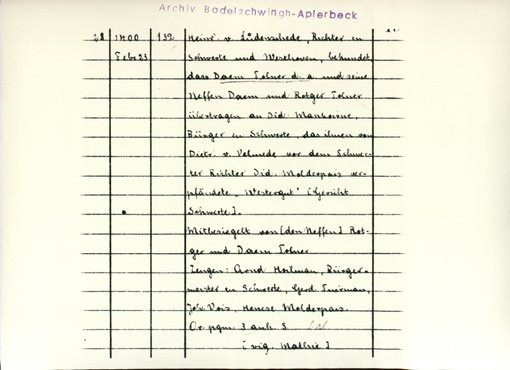 Archiv Bodelschwingh-Aplerbeck
28 1400 132 Heinr. v. Lüdenschede, Richter zu
Febr 23 Schwerte und Westhoven, bekundet,
dass Daem Tolner d. a. und seine
Neffen Daem und Rotger Tolner
übertragen an Did. Mankorine,
Bürger zu Schwerte, das ihnen von
Dietr. v. Velmede vor dem Schwer-
ter Richter Did. Molderpas ver-
pfändete „Westergut“ (Gericht
Schwerte).
Mitbesiegelt von [den Neffen] Rot-
ger und Daem Tolner
Zeugen: Arnd Horlman, Bürger-
meister zu Schwerte, Gerd
Joh. Vois, Henese Molderpas.
Or. pgm. 3 anh. S
[sig. Mallnie]